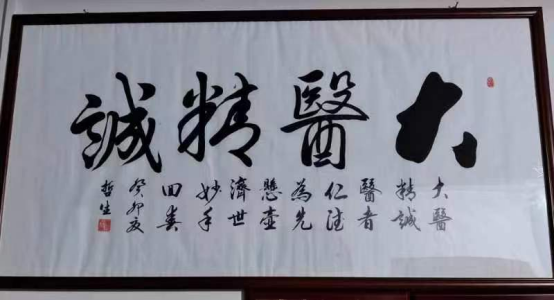 大醫精誠
大醫
精誠
醫者
仁德
為先
懸壺
濟世
妙手
回春
癸卯夏
哲生